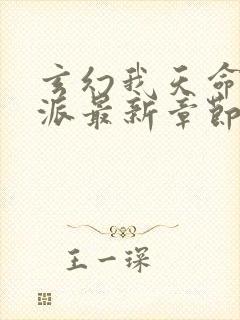 玄幻我天命
派最新章節
王一琛